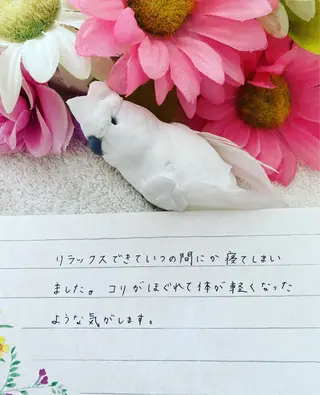 リラックスできていつの間にか寝てしまい
ました。コリがほぐれて体が軽くなった
ような気がします。